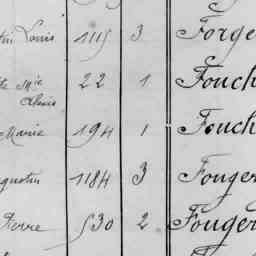 Louis 1115 3 Forge
Mie 22 1 Fouch
Alexis
Marie 194 1 Fouch
gustin 1184 3 Fouger
Pierre 530 2 Fouger